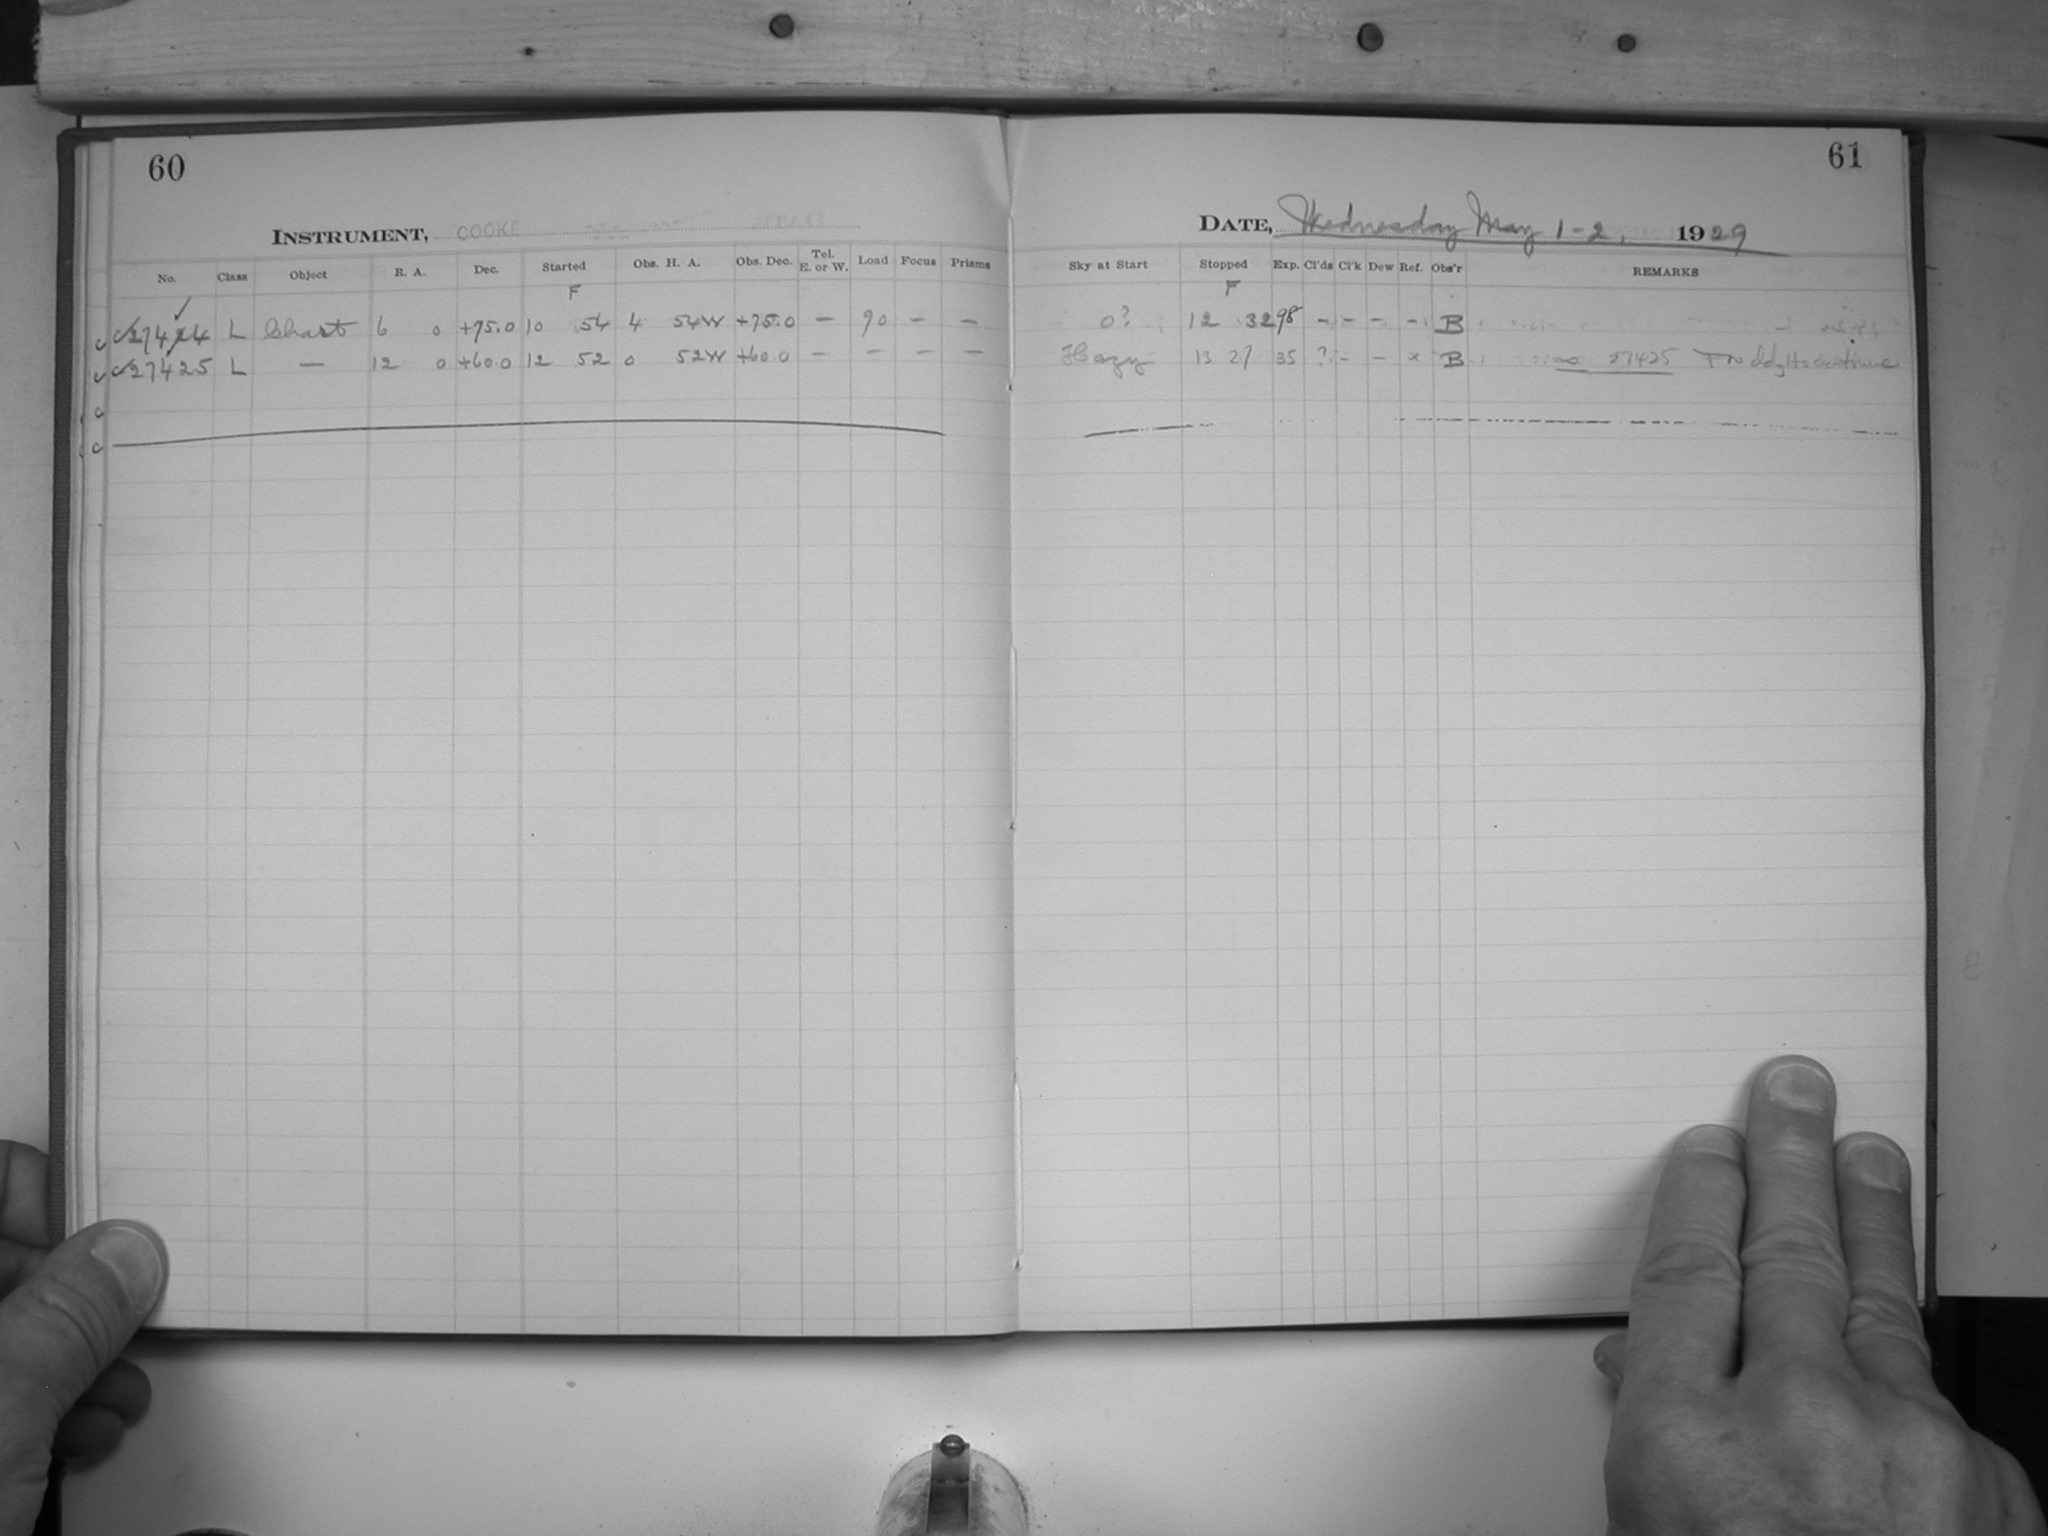 60
INSTRUMENT, COOKE
No. Class Object R. A. Dec. Started Obs. H. A. Obs. Dec. Tel. E. or W. Load Focus Prisms
F
27424 L Chart 6 0 +75.0 10 54 4 54W +75.0 — 90 — —
27425 L — 12 0 +60.0 12 52 0 52W +60.0 — — — —
61
DATE, Wednesday May 1-2, 1929
Sky at Start Stopped Exp. Cl'ds Cl'k Dew Ref. Obs'r REMARKS
F
0? 12 32 98 — — — — B
Hazy 13 27 35 ? — — x B 27425 to continue